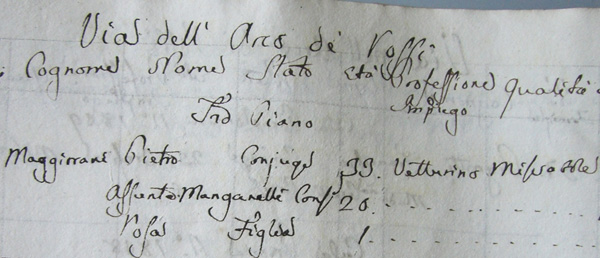 Via dell' Arco de' Rossi
Cognome Nome Stato Età Professione Qualità
Impiego
Pmo Piano
Maggiorani Pietro Conjuge 33. Vetturino Miserabile
Assunta Manganelli Conj 20.
Rosa Figlia 1.